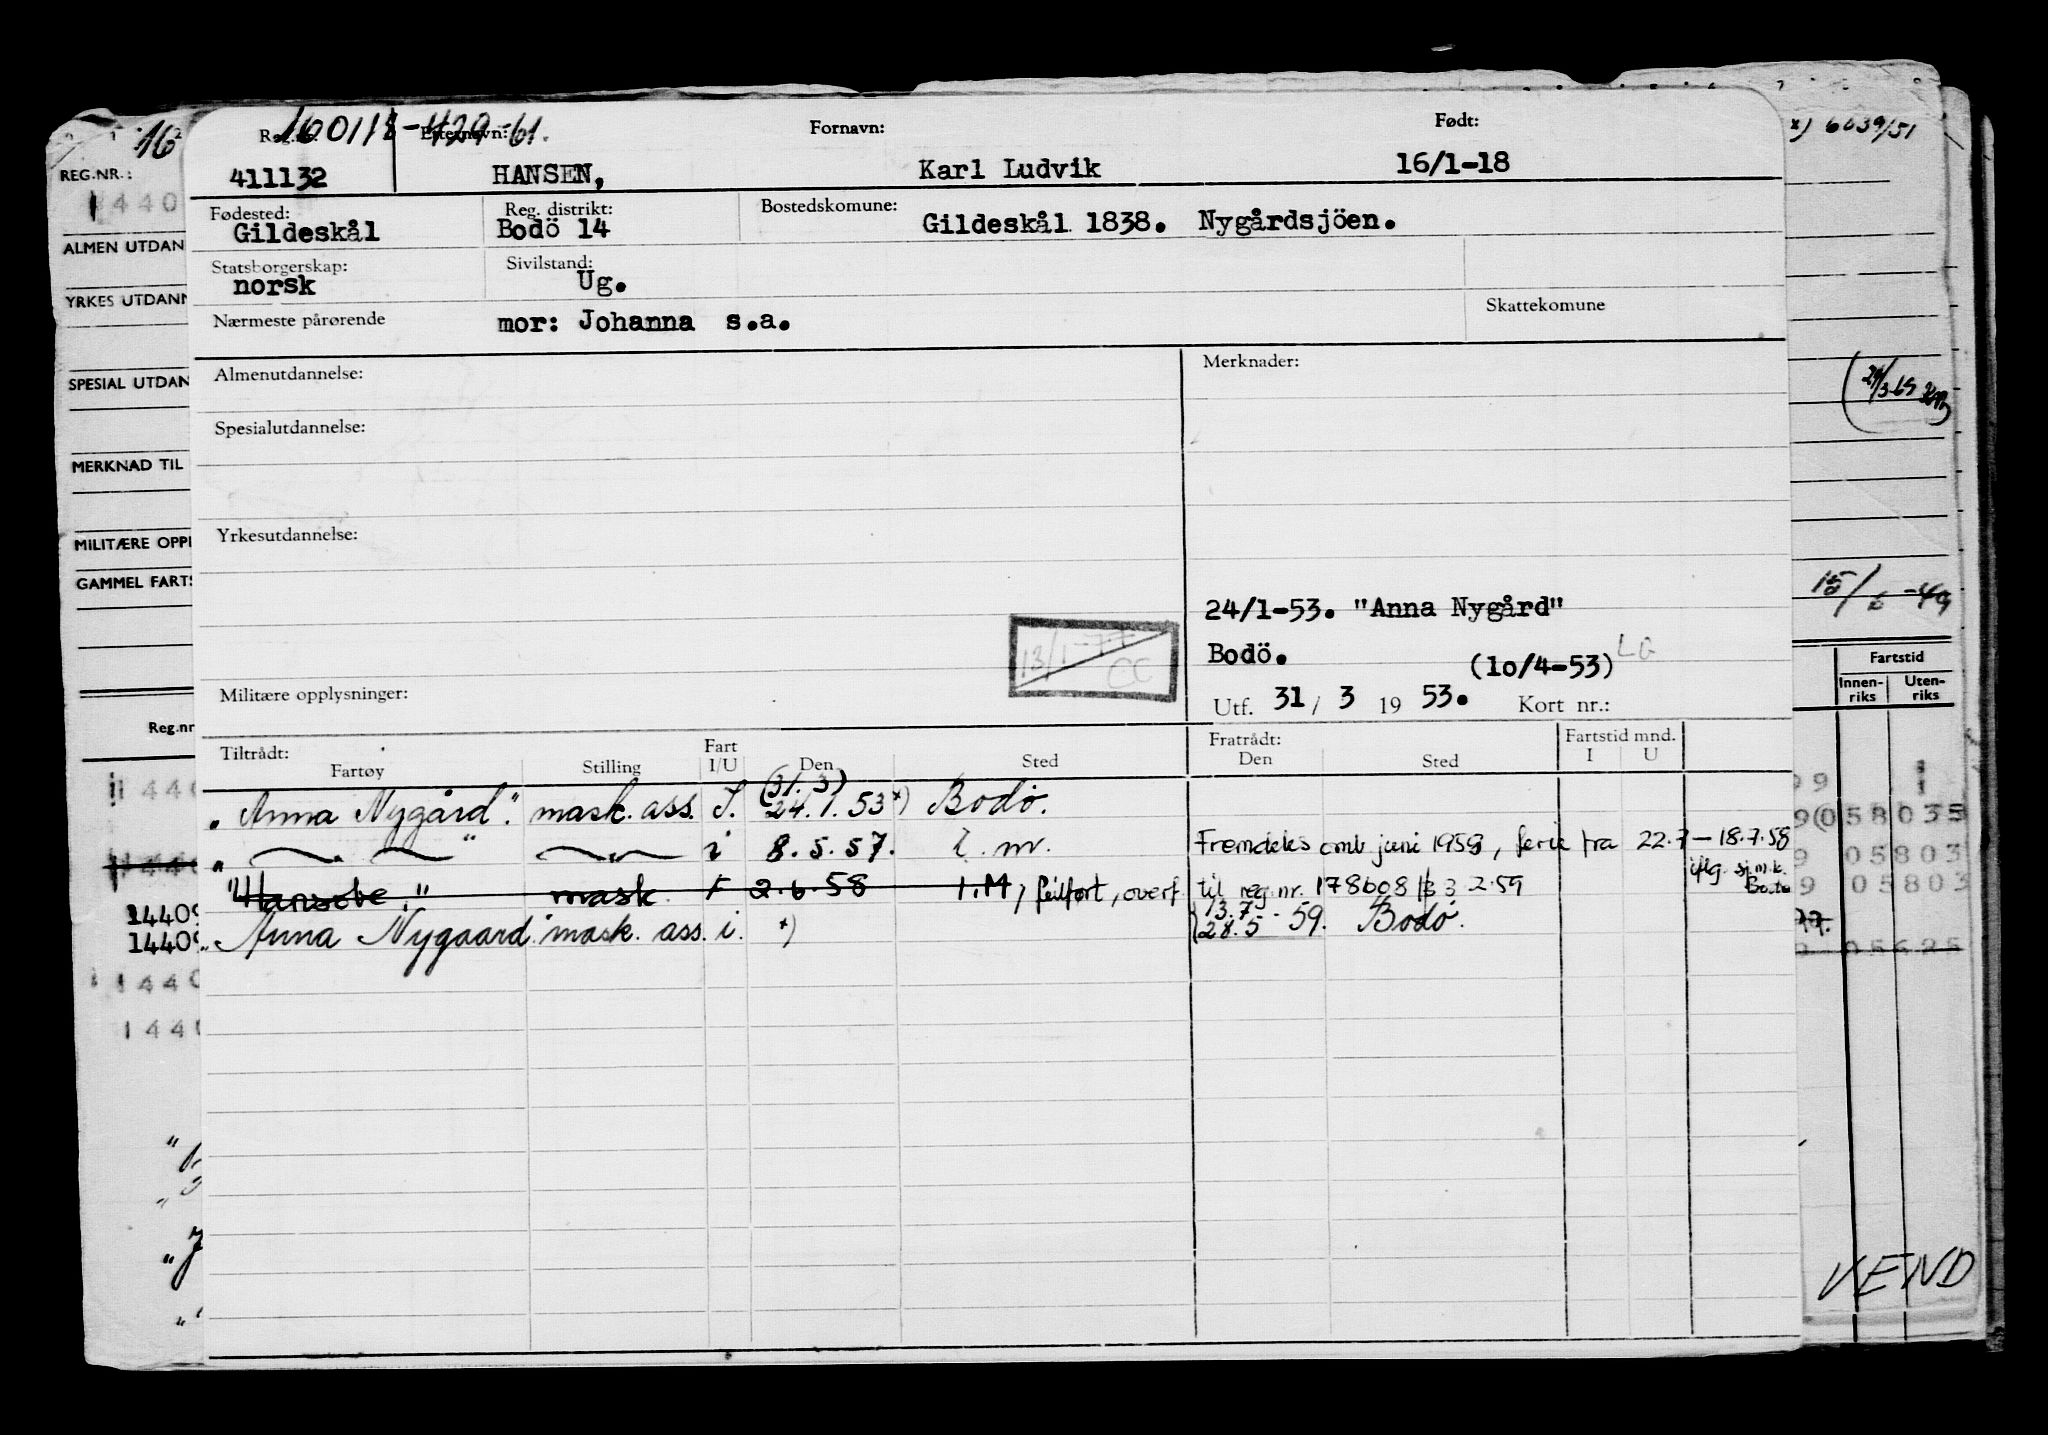 160118-429-61.
Reg.nr. Etternavn: Fornavn: Født:
411132 HANSEN, Karl Ludvik 16/1-18
Fødested: Reg. distrikt: Bostedskomune:
Gildeskål Bodö 14 Gildeskål 1838. Nygårdsjöen.
Statsborgerskap: Sivilstand:
norsk Ug.
Nærmeste pårørende mor: Johanna s.a. Skattekomune
Almenutdannelse: Merknader:
Spesialutdannelse:
Yrkesutdannelse:
24/1-53. "Anna Nygård"
13/1-77 CC
Bodö. (10/4-53) LG
Militære opplysninger: Utf. 31/ 3 19 53. Kort nr.:
Tiltrådt: Fart Fratrådt: Fartstid mnd.
Fartøy Stilling I/U Den Sted Den Sted I U
(31.3)
"Anna Nygård". mask. ass. I. 24.1.53 x) Bodö.
" — " — " — " — i 8.5.57. i. m. Fremdeles omb juni 1958, ferie fra 22.7 — 18.7.58
iflg. sj.m.k. Bodø
"Hansebe." mask 2.6.58 I.M, feilført, overf. til reg. nr. 178608 2.59
13.7
"Anna Nygaard" mask. ass. i. x) 28.5 - 59. Bodö.
16
REG.NR.:
1440
ALMEN UTDAN
YRKES UTDANN
SPESIAL UTDAN
MERKNAD TIL
MILITÆRE OPPL
GAMMEL FARTS
Reg.nr
1440
1440
14409
14409
1440
1440
x) 6639/51
15/6-49
Fartstid
Innen-riks Uten-riks
99 1
9(058035
9 05803
9 05803
05625
VEND